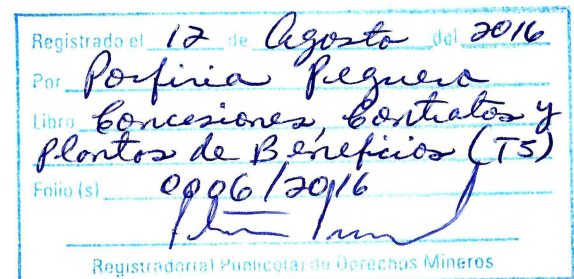 Registrado el 12 de Agosto del 2016
Por Porfiria Peguero
Libro Concesiones, Contratos y
Plantas de Beneficios (T5)
Folio (s) 0006/2016
Registrador(a) Público(a) de Derechos Mineros